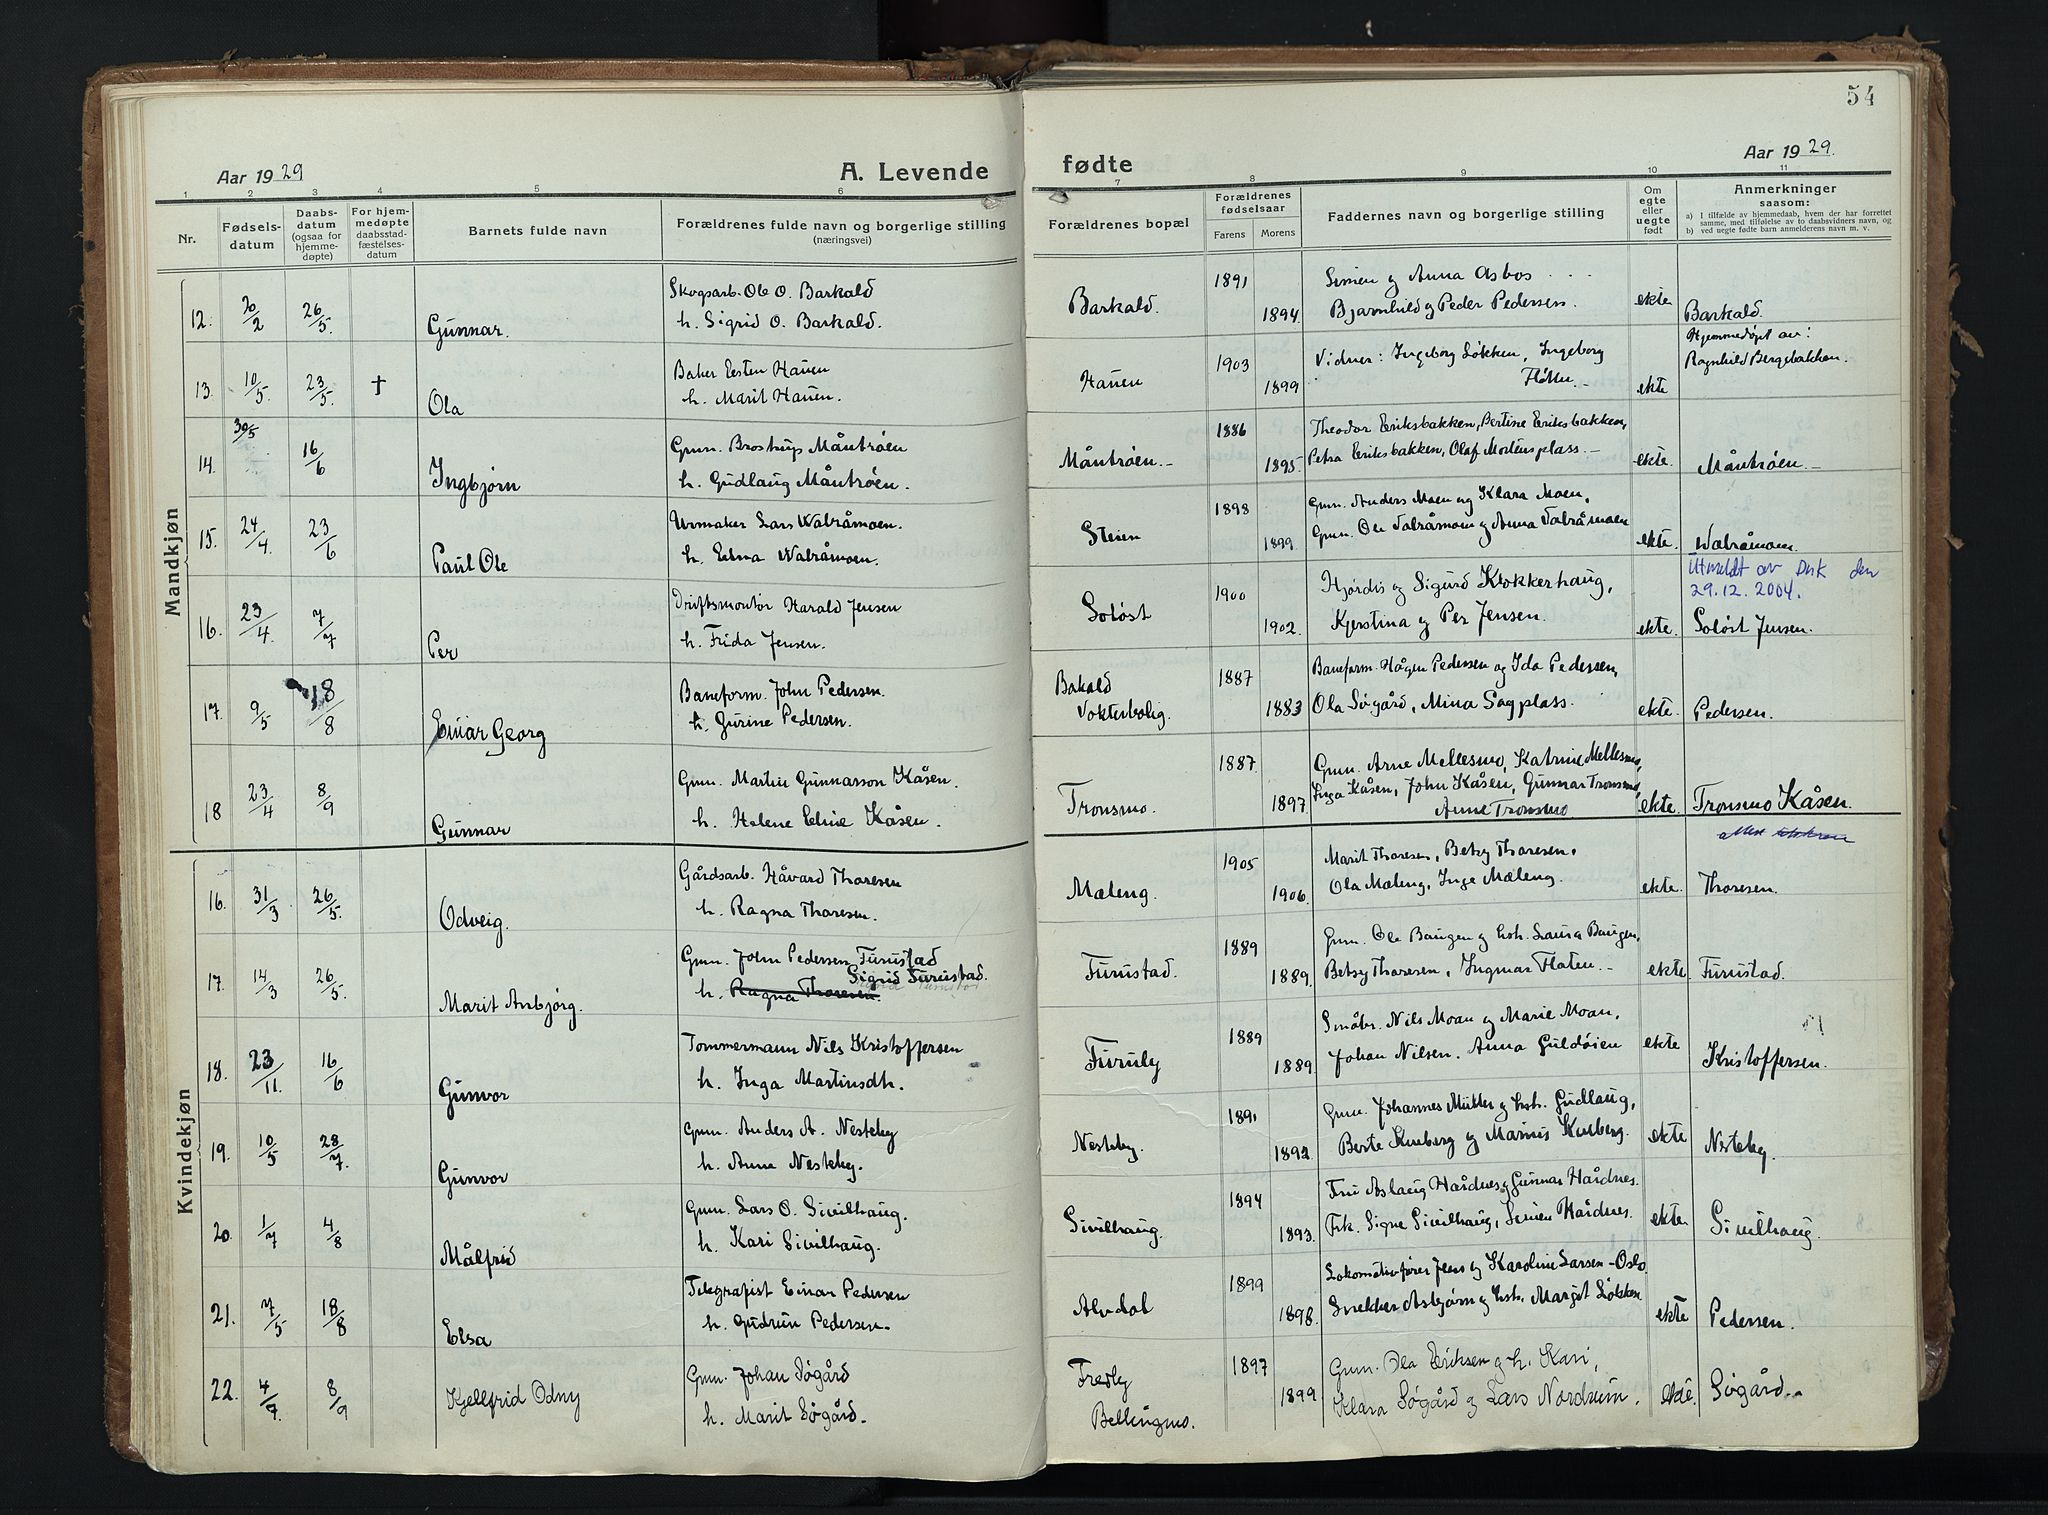 54
Aar 1929
A. Levende
fødte
Aar 1929.
1 2 3 4 5 6 7 8 9 10 11
Nr.
Fødsels-
datum
Daabs-
datum
(ogsaa for
hjemme-
døpte)
For hjem-
medøpte
daabsstad-
fæstelses-
datum
Barnets fulde navn
Forældrenes fulde navn og borgerlige stilling
(næringsvei)
Forældrenes bopæl
Forældrenes
fødselsaar
Farens Morens
Faddernes navn og borgerlige stilling
Om
egte
eller
uegte
født
Anmerkninger
saasom:
a) I tilfælde av hjemmedaab, hvem der har forrettet
samme, med tilføielse av to daabsvidners navn, og
b) ved uegte fødte barn anmelderens navn m. v.
Mandkjøn
Skogsarb. Ole O. Barkald 1891 Simen og Anna Asbos . . .
12. 20/2 26/5. Gunnar. h. Sigrid O. Barkald. Barkald. 1894. Bjarnhild og Peder Pedersen. ekte Barkald.
Hjemmedøpt av:
Baker Eesten Hauen 1903 Vidner: Ingeborg Løkken, Ingeborg Ragnhild Bergebakken.
13. 10/5. 23/5. † Ola h. Marit Hauen. Hauen 1899 Fløtten. - ekte
30/5 Gmn. Brostrup Måntrøen 1886 Theodor Eeriksbakken, Bertine Eeriksbakken,
14. 16/6 Ingbjørn h. Gudlaug Måntrøen. Måntrøen. - 1895. Petra Eeriksbakken, Olaf Mortensplass. - ekte. Måntrøen. -
Urmaker Lars Wabråmoen. 1898 Gmn. Anders Moen og Klara Moen,
15. 24/4. 23/6 Paul Ole h. Edna Wabråmoen. Steien 1899. Gmn. Ole Vabråmoen og Anna Vabråmoen ekte. Wabråmoen.
Utmeldt av Dnk den
29.12. 2004.
Driftsmontør Harald Jensen 1900 Hjørdis og Sigurd Klokkerhaug,
16. 23/4. 7/7 Per h. Frida Jensen. Soløst 1902. Kjerstina og Per Jensen. ekte. Soløst Jensen.
Baneform. John Pedersen. Bakald 1887 Baneform. Hågen Pedersen og Ida Pedersen,
17. 9/5 18/8 Einar Georg h. Gurine Pedersen. Vokterbolig. 1883 Ola Søgård, Mina Sagplass. ekte. Pedersen.
Gmn. Martin Gunnarson Kåsen. 1887. Gmn. Arne Mellesmo, Katrine Mellesmo,
Inga Kåsen, John Kåsen, Gunnar Tronsmo,
18 23/4 8/9 Gunnar h. Helene Eline Kåsen. Tronsmo. 1897 Anne Tronsmo ekte. Tronsmo Kåsen.
Kvindekjøn
Gårdsarb. Håvard Thoresen 1905 Marit Thoresen, Betsy Thoresen,
16. 31/3 26/5. Odveig. h. Ragna Thoresen. Mæleng. 1906. Ola Mæleng, Inge Mæleng. ekte. Thoresen.
Gmn. John Pedersen Furustad 1889 Gmn. Ole Baugen og hsh. Laura Baugen,
Sigrid Furustad.
17. 14/3 26/5. Marit Anbjørg. h. Ragna Thoresen. Furustad. 1889. Betsy Thoresen, Ingmar Floten. - ekte Furustad.
Tømmermann Nils Kristoffersen 1889 Småbr. Nils Moan og Marie Moan,
18. 23/11. 16/6 Gunvor h. Inga Martinsdh. Furuly 1889. Johan Nilsen. Anna Guldøien ekte Kristoffersen.
Gmn. Anders A. Nesteby 1891 Gmn. Johannes Mükler og hsh. Gudlaug,
19. 10/5 28/7. Gunvor h. Anne Nesteby. Nesteby. 1892. Berte Kulberg og Marius Kulberg. ekte Nesteby.
Gmn. Lars O. Sivilhaug. 1894 Fru Aslaug Hårdnes og Gunnar Hårdnes.
20. 1/7 4/8 Målfrid h. Kari Sivilhaug. Sivilhaug. 1893. Frk. Signe Sivilhaug, Simen Hårdnes. ekte Sivilhaug.
Telegrafist Einar Pedersen 1899 Lokomotivfører Jens og Karoline Larsen - Oslo.
21. 7/5 18/8 Elsa h. Gudrun Pedersen. Alvdal 1898. Snekker Asbjørn og hsh. Margit Løkken ekte Pedersen.
Gmn. Johan Søgård Tredby 1897 Gmn. Ola Eeriksen og h. Kari,
22. 4/7. 8/9 Kjellfrid Odny h. Marit Søgård. Bellingmo. 1899 Klara Søgård og Lars Nordrum. ekte. Søgård.